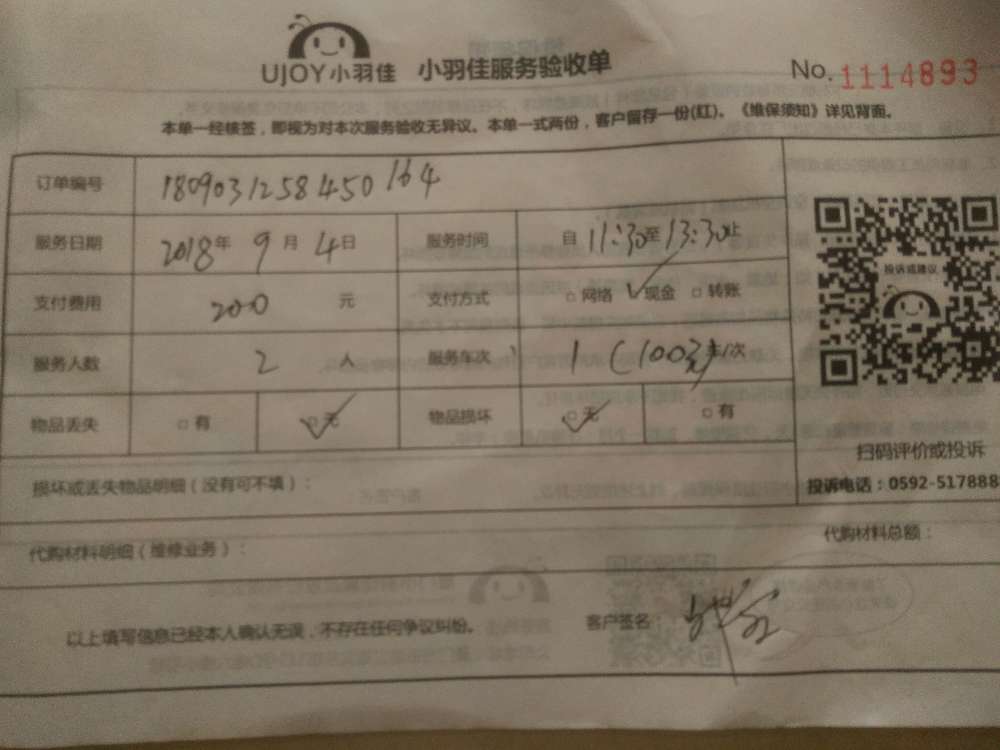 UJOY小羽佳 小羽佳服务验收单 No. 1114893
本单一经核签，即视为对本次服务验收无异议。本单一式两份，客户留存一份(红)。《维保须知》详见背面。
订单编号 180903125845０164
服务日期 2018年 9月 4日 服务时间 自 11:30至 13:30止
支付费用 200 元 支付方式 □网络 ☑现金 □转账
服务人数 2 人 服务车次 1 (100元) 车/次
物品丢失 □有 ☑无 物品损坏 ☑无 □有
投诉或建议
扫码评价或投诉
损坏或丢失物品明细（没有可不填）：
投诉电话：0592-517888
代购材料明细（维修业务）：
代购材料总额：
以上填写信息已经本人确认无误，不存在任何争议纠纷。 客户签名：